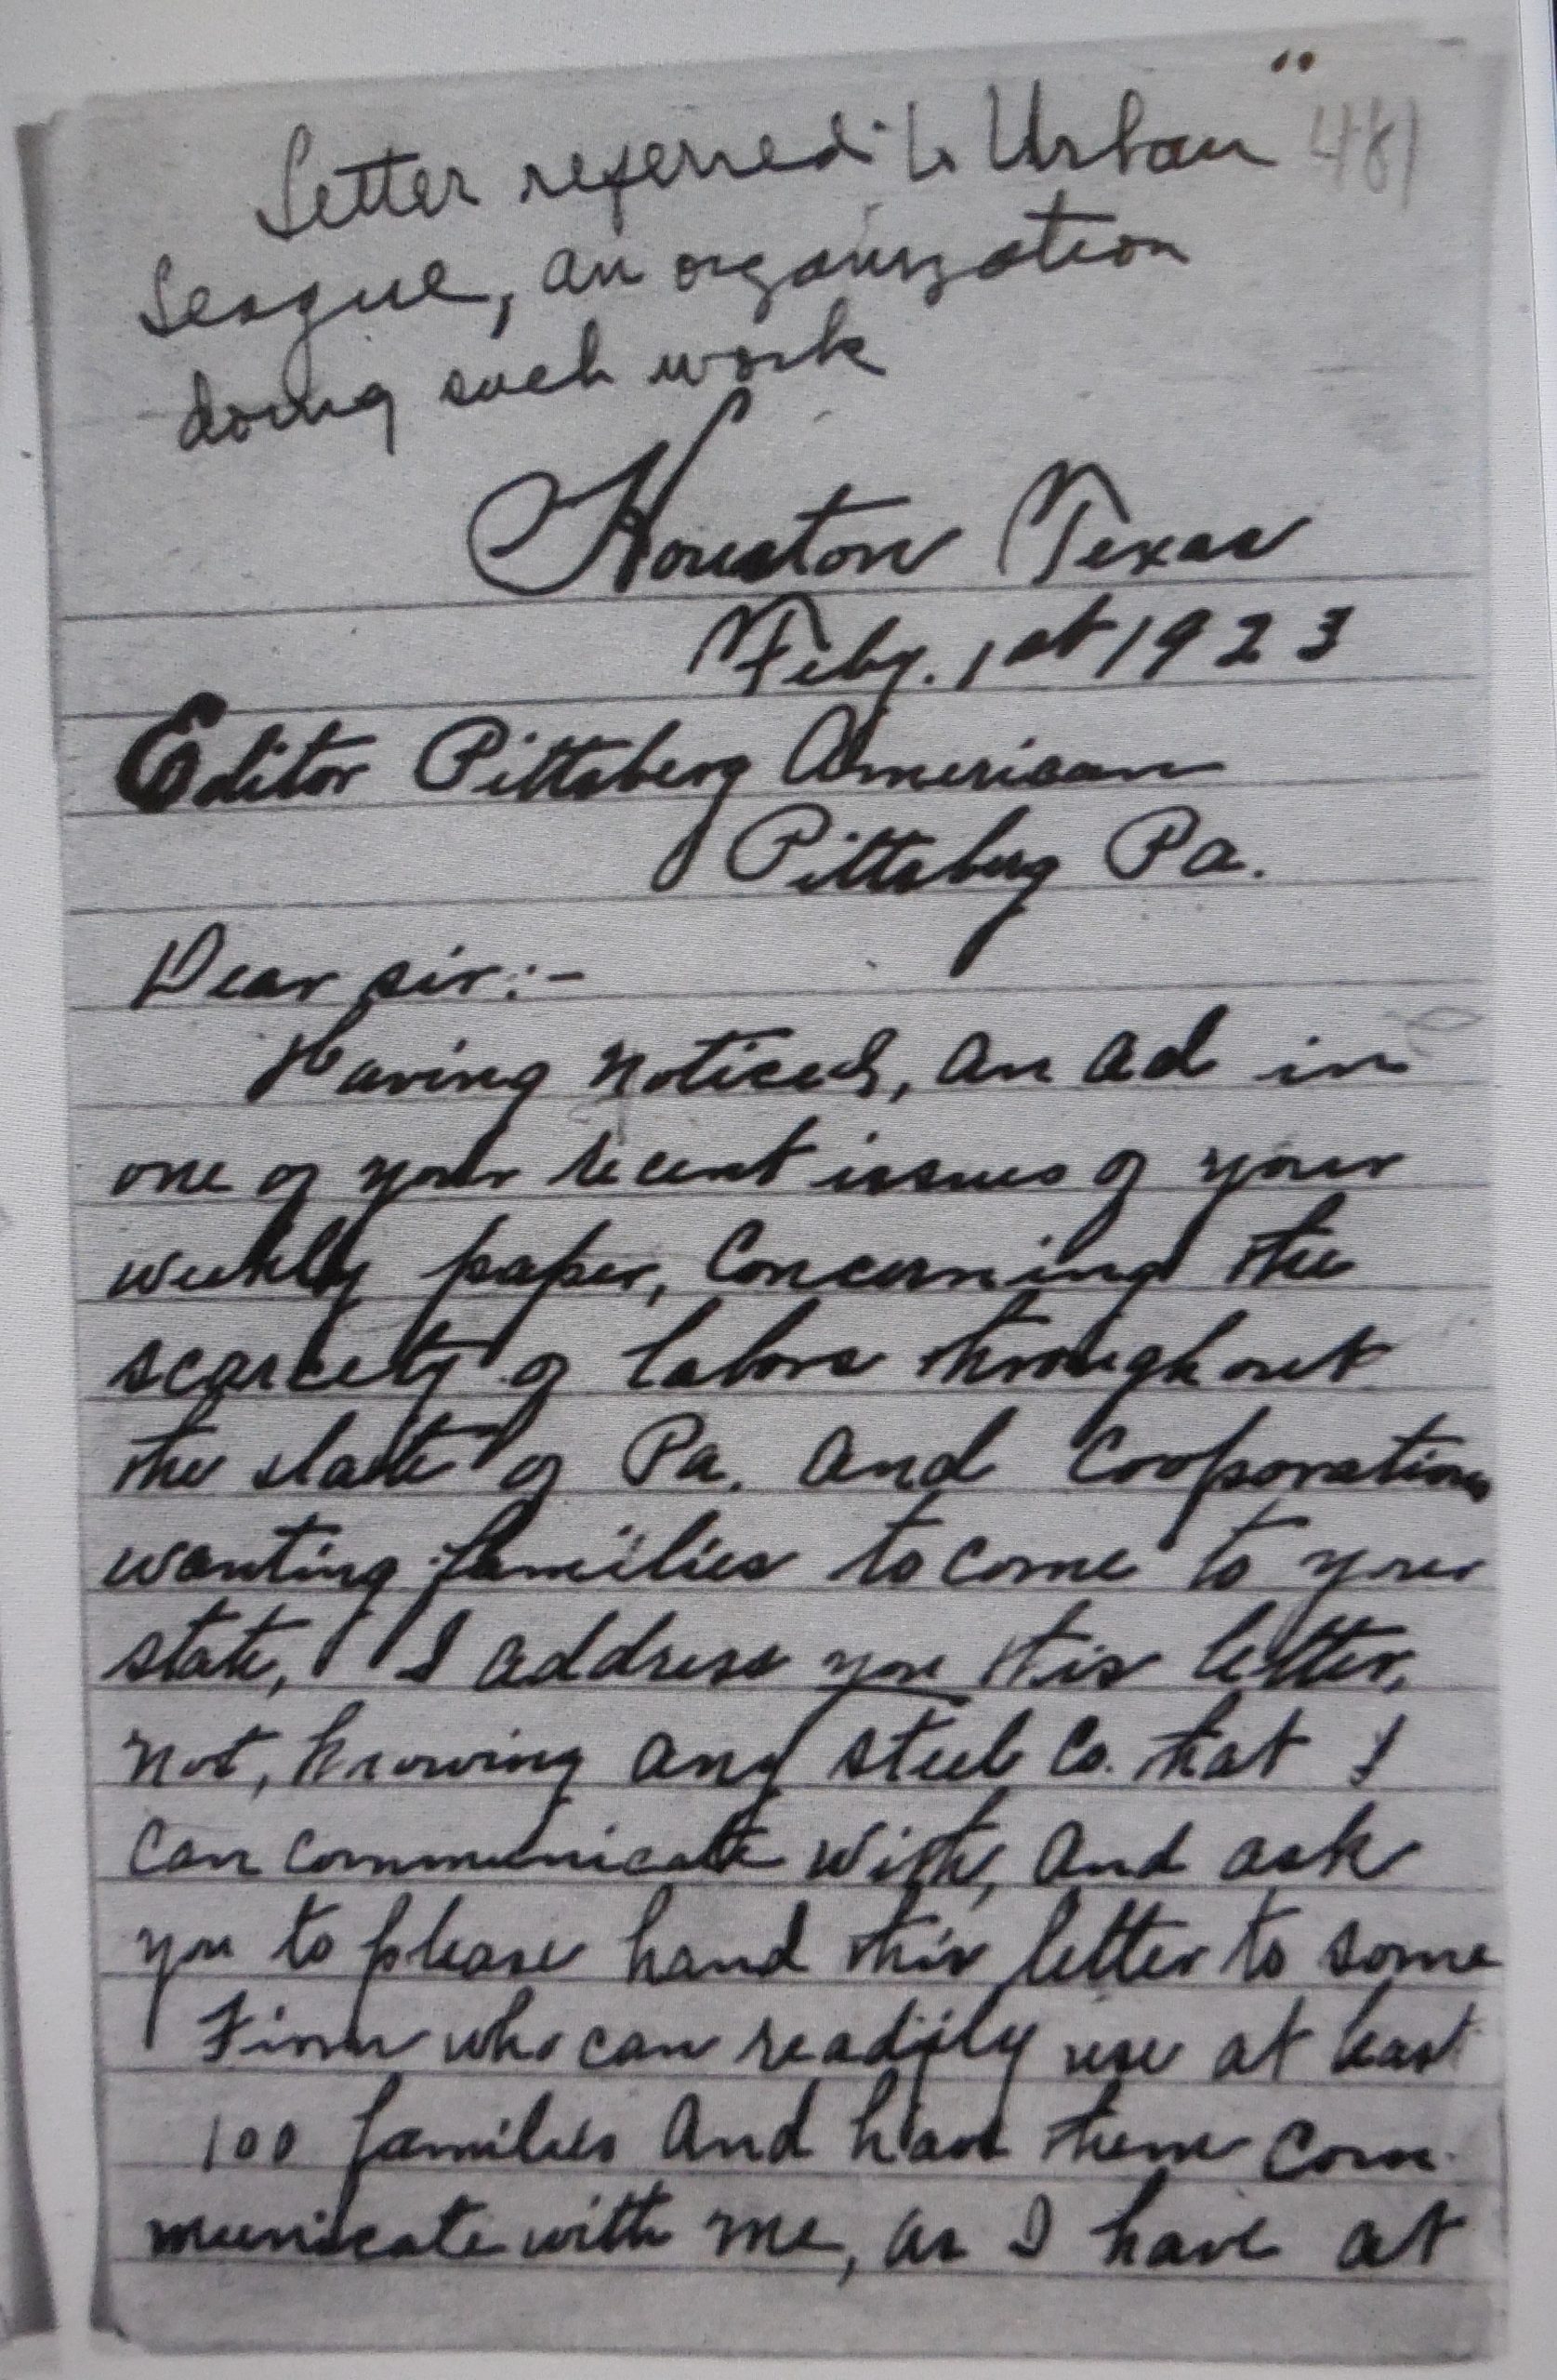 Letter referred to Urban 481
League, an organization
doing such work
Houston Texas
Feby. 1st 1923
Editor Pittsberg American
Pittsberg Pa.
Dear sir:-
Having noticed, an ad in
one of your recent issues of your
weekly paper, Concerning the
scarcety of labore throughout
the state of Pa. and Cooporations
wanting families to come to your
state, I address you this letter,
not, knowing any steel Co. that I
can communicate with, and ask
you to please hand this letter to some
Firm who can readily use at least
100 families and have them com-
municate with me, as I have at